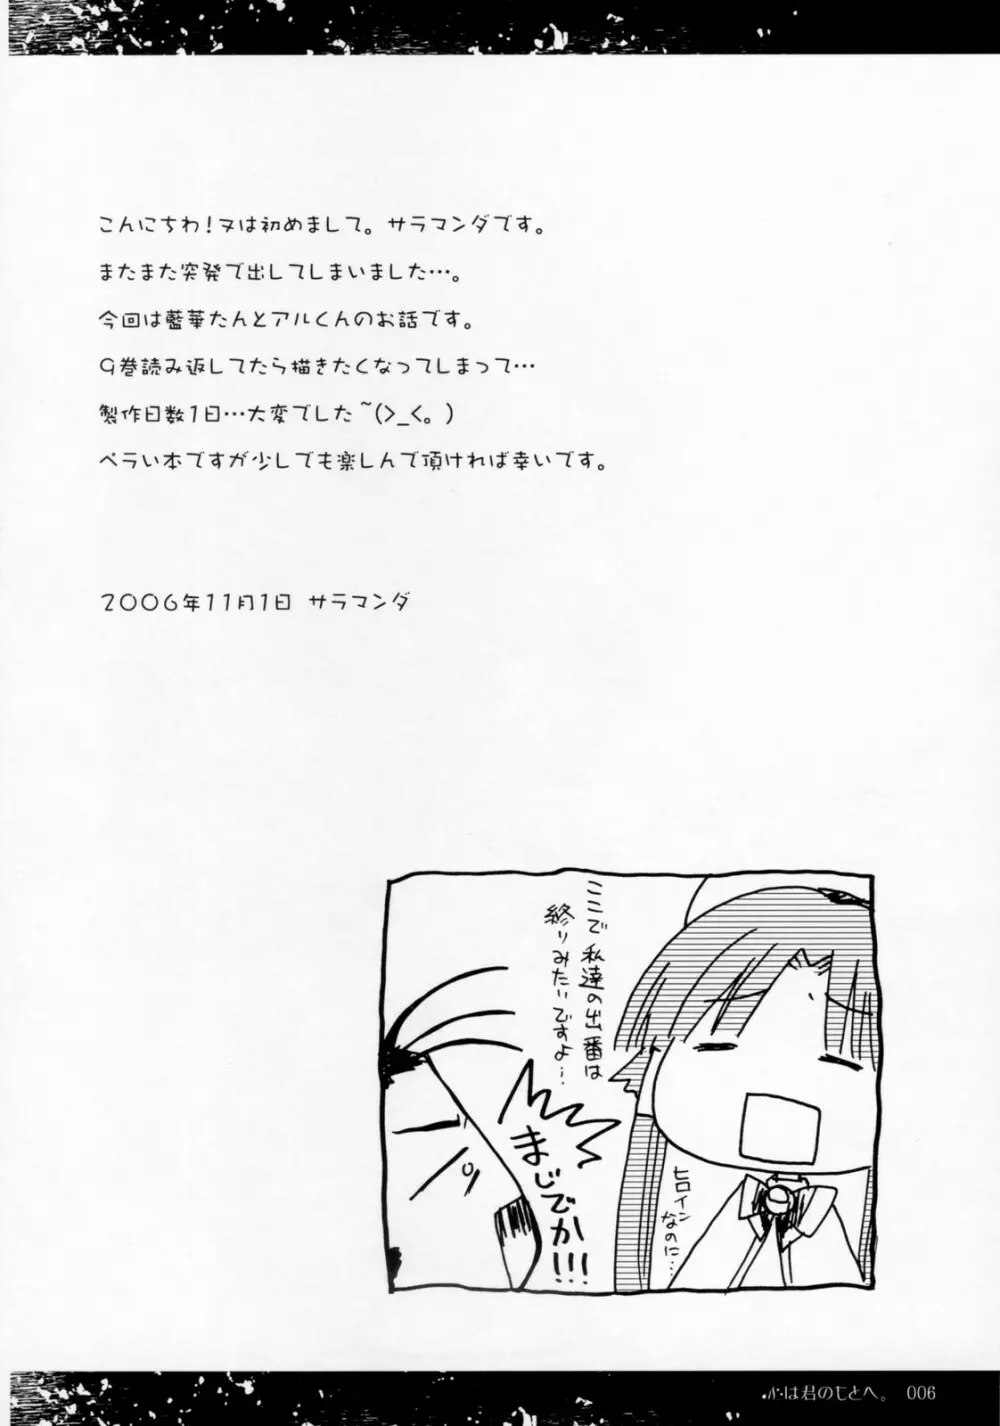 こんにちわ!ヌは初めまして。サラマンダです。
またまた突発で出してしまいました…。
今回は藍華たんとアルくんのお話です。
9巻読み返してたら描きたくなってしまって…
製作日数1日…大変でした~(>_<。)
ペラい本ですが少しでも楽しんで頂ければ幸いです。
2006年11月1日 サラマンダ
ここで私達の出番は
終りみたいですよ…
まじでか!!!
ヒロイン
なのに…
心は君のもとへ。 006